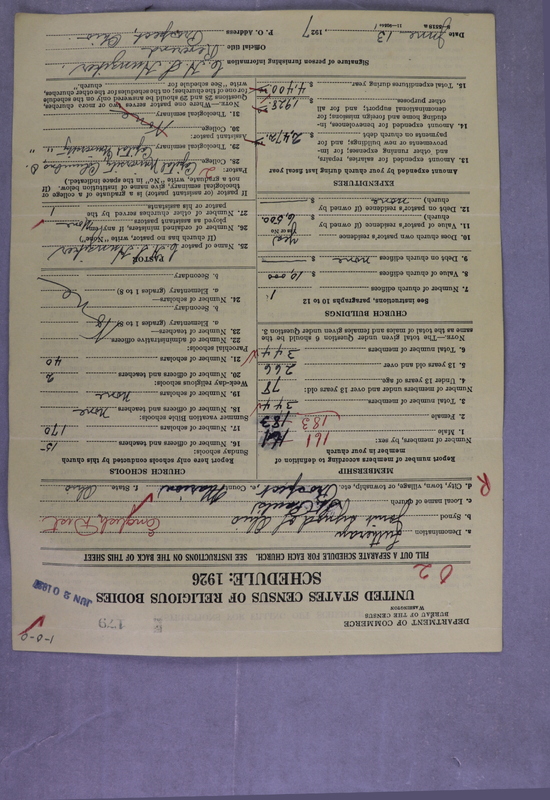 1-0-0
179
DEPARTMENT OF COMMERCE
BUREAU OF THE CENSUS
WASHINGTON
UNITED STATES CENSUS OF RELIGIOUS BODIES
SCHEDULE: 1926
JUN 20 192
02
FILL OUT A SEPARATE SCHEDULE FOR EACH CHURCH. SEE INSTRUCTIONS ON THE BACK OF THIS SHEET
a. Denomination Lutheran
b. Synod Joint Synod of Ohio English Dist.
c. Local name of church St Pauls
d. City, town, village, or township, etc. Prospect e. County Marion f. State Ohio
R
MEMBERSHIP
Report number of members according to definition of member in your church
Number of members, by sex:
1. Male 161 161
2. Female 183 183
3. Total number of members 344
Number of members under and over 13 years old:
4. Under 13 years of age 78
5. 13 years old and over 266
6. Total number of members 344
NOTE.—The total given under Question 6 should be the same as the total of males and females given under Question 3.
CHURCH BUILDINGS
See instructions, paragraphs 10 to 12
7. Number of church edifices 1
8. Value of church edifices $ 10,000
9. Debt on church edifices $ none
10. Does church own pastor's residence yes
(Yes or No)
11. Value of pastor's residence (owned by church) $ 6,500
12. Debt on pastor's residence (owned by church) $ none
EXPENDITURES
Amount expended by your church during last fiscal year
13. Amount expended for salaries, repairs, and other running expenses; for improvements or new building; and for payments on church debt $ 2,472
14. Amount expended for benevolences, including home and foreign missions; for denominational support; and for all other purposes $ 1,928
15. Total expenditures during year $ 4,400
CHURCH SCHOOLS
Report here only schools conducted by this church
Sunday schools:
16. Number of officers and teachers 15
17. Number of scholars 170
Summer vacation Bible schools:
18. Number of officers and teachers none
19. Number of scholars none
Week-day religious schools:
20. Number of officers and teachers 2
21. Number of scholars 40
Parochial schools:
22. Number of administrative officers
23. Number of teachers—
a. Elementary (grades 1 to 8)
b. Secondary
24. Number of scholars—
a. Elementary (grades 1 to 8)
b. Secondary
PASTOR
25. Name of pastor
(If church has no pastor, write "None")
26. Number of ordained ministers, if any, employed as assistant pastors None
27. Number of other churches served by the pastor or his assistants 1
If pastor (or assistant pastor) is a graduate of a college or theological seminary, give name of institution below. (If not a graduate, write "No" in the space indicated.)
Pastor:
28. College Capital University Columbus O.
29. Theological seminary Capital University " "
Assistant pastor:
30. College None
31. Theological seminary
NOTE.—Where one pastor serves two or more churches, Questions 28 and 29 should be answered only on the schedule for one of the churches; on the schedules for the other churches, write "See schedule for church."
Signature of person furnishing information
Official title Reverend
P. O. Address Prospect, Ohio
Date June 13 1927